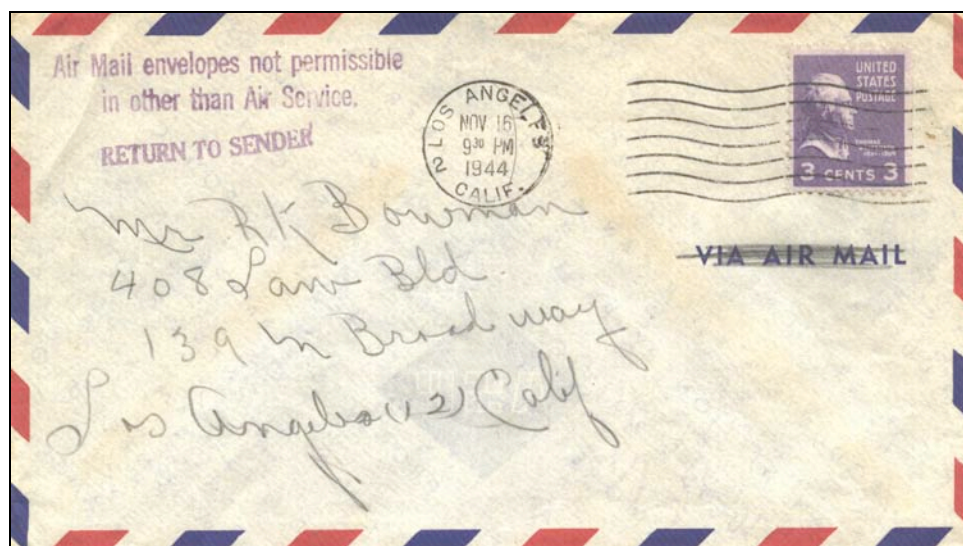 Air Mail envelopes not permissible
in other than Air Service.
RETURN TO SENDER
LOS ANGELES
2
NOV 16
9³⁰ PM
1944
CALIF.
UNITED
STATES
POSTAGE
3 CENTS 3
VIA AIR MAIL
Mr R K Bowman
408 Law Bld.
139 N Broadway
Los Angeles (12) Calif